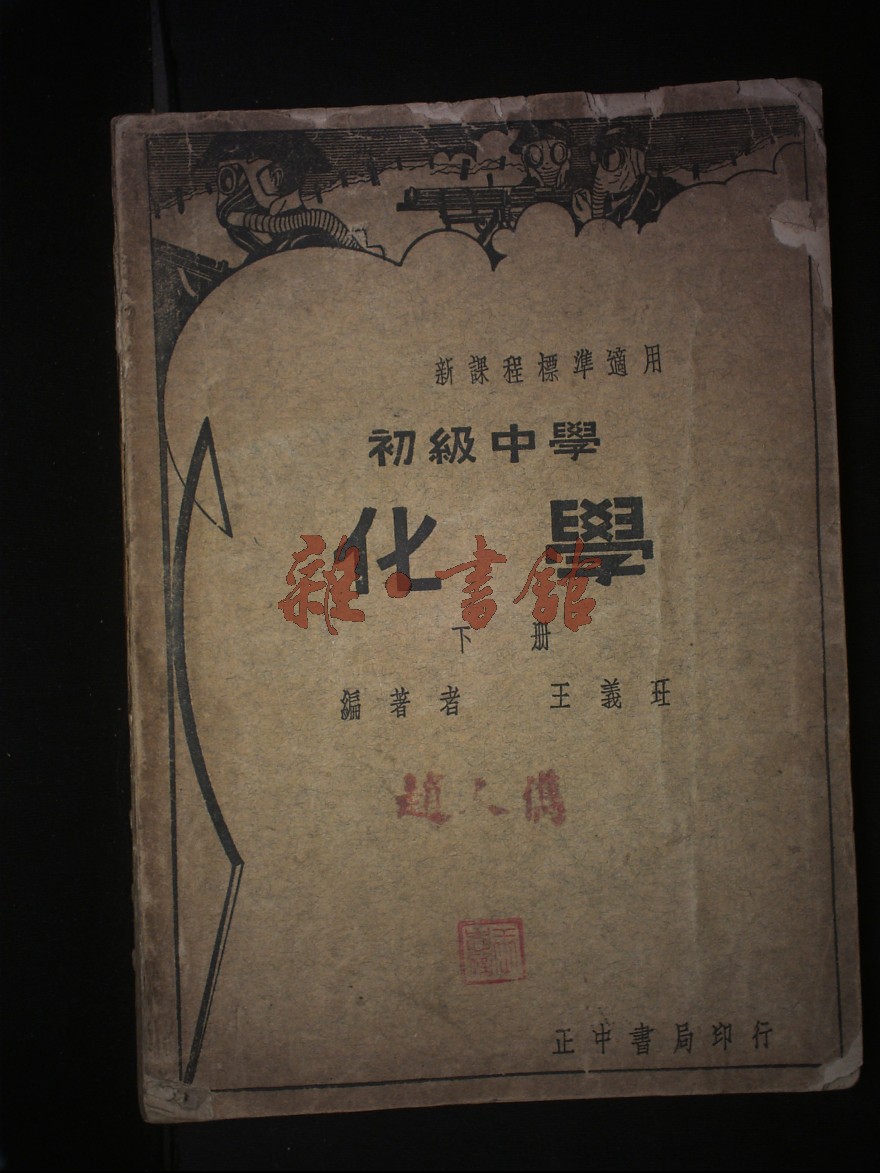 新課程標準適用
初級中學
化學
雜·書館
下册
編著者 王義玨
趙人偶
正中書局印行